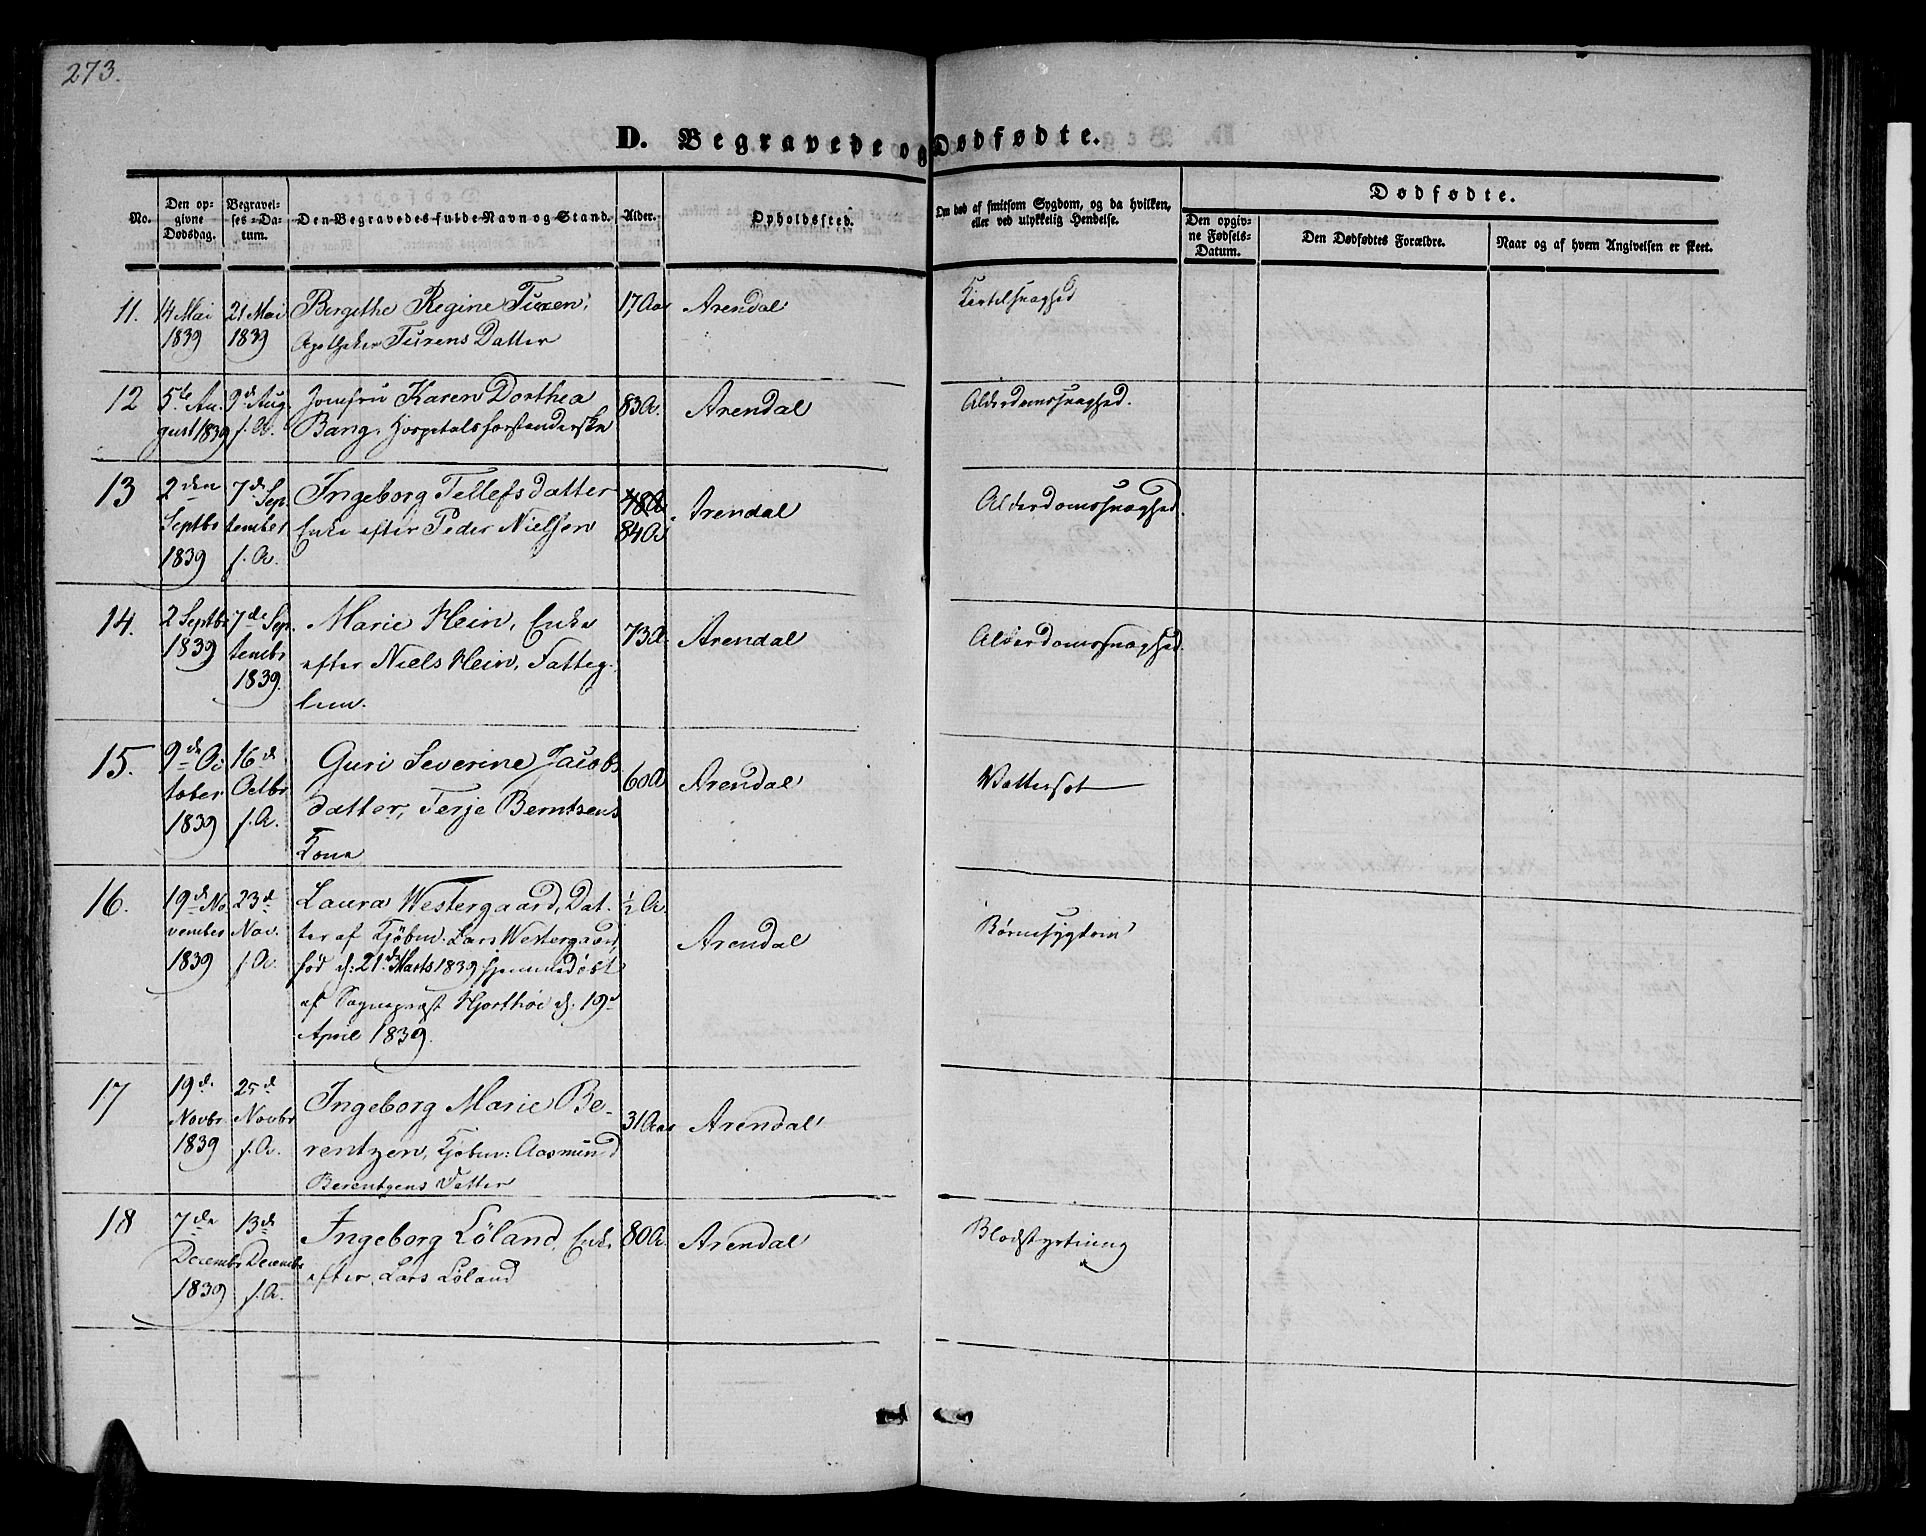 273.
D. Begravede og Dødfødte.
No.
Den op-
givne
Dødsdag.
Begravel-
ses-Da-
tum.
Den Begravedes fulde Navn og Stand.
Alder.
Opholdssted.
Om død af smitsom Sygdom, og da hvilken,
eller ved ulykkelig Hendelse.
Dødfødte.
Den opgiv-
ne Fødsels-
Datum.
Den Dødfødtes Forældre.
Naar og af hvem Angivelsen er skeet.
11.
14 Mai
1839
21 Mai
1839
Bergithe Regine Tuxen,
Apotheker Tuxens Datter
17 Aar
Arendal
12
5te Au-
gust 1839
9d Aug.
s. A.
Jomfru Karen Dorthea
Bang, Hospitalsforstanderske
83 A.
Arendal
Alderdomssvaghed.
13
2den
Septbr
1839
7d Sep-
tember
s. A.
Ingeborg Tellefsdatter
Enke efter Peder Nielsen
84 A.
Arendal
Alderdomssvaghed.
14.
2 Septbr
1839
7de Sep-
tembr
1839.
Marie Hein, Enke
efter Niels Hein, Fattig-
lem.
73 A.
Arendal
Alderdomssvaghed.
15.
9de Oc-
tober
1839
16d
Octbr
s. A.
Guri Severine Jacobs
datter, Terje Berntsens
Kone
60 A
Arendal
Vattersot
16.
19d No-
vember
1839
23d
Nov.
s. A.
Laura Westergaard, Dat-
ter af Kjøbm. Lars Westergaard,
fød d. 21d Marts 1839 hjemmedøbt
af Sognepræst Hjorthöi d. 19d
April 1839.
½ A.
Arendal
Børnesygdom
17
19de
Novbr.
1839
25d
Novbr
s. A.
Ingeborg Marie Be-
rentzen, Kjøbm: Aasmund
Berentzens Datter
31 Aar
Arendal
18
7de
Decembr
1839
13de
Decembr
s. A.
Ingeborg Löland, Enke
efter Lars Löland
80 A.
Arendal
Blodstyrtning